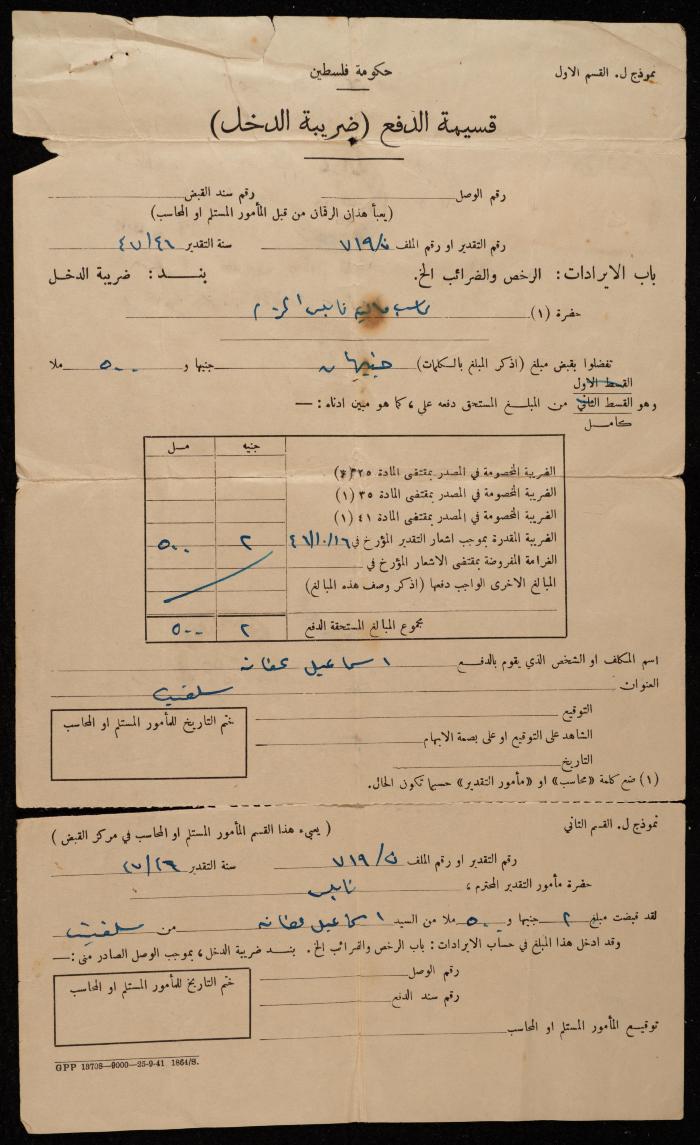 نموذج ل. القسم الاول
حكومة فلسطين
قسيمة الدفع (ضريبة الدخل)
رقم الوصل
رقم سند القبض
(يعبأ هذان الرقمان من قبل المأمور المستلم او المحاسب)
رقم التقدير او رقم الملف ن/٧١٩ سنة التقدير ٤٧/٤٦
باب الايرادات: الرخص والضرائب الخ. بند: ضريبة الدخل
حضرة (١) محاسب مالية نابلس المحترم
تفضلوا بقبض مبلغ (اذكر المبلغ بالكلمات) جنيهان جنيها و ٥٠٠ ملا
القسط الاول
وهو القسط الثاني من المبلغ المستحق دفعه علي، كما هو مبين ادناه:—
كامل
جنيه مل
الضريبة المخصومة في المصدر بمقتضى المادة ٣٢٥(٢)
الضريبة المخصومة في المصدر بمقتضى المادة ٣٥ (١)
الضريبة المخصومة في المصدر بمقتضى المادة ٤١ (١)
الضريبة المقدرة بموجب اشعار التقدير المؤرخ في ٤٦/١٠/١٦ ٢ ٥٠٠
الغرامة المفروضة بمقتضى الاشعار المؤرخ في
المبالغ الاخرى الواجب دفعها (اذكر وصف هذه المبالغ)
مجموع المبالغ المستحقة الدفع ٢ ٥٠٠
اسم المكلف او الشخص الذي يقوم بالدفع اسماعيل عفانه
العنوان سلفيت
التوقيع
ختم التاريخ للمأمور المستلم او المحاسب
الشاهد على التوقيع او على بصمة الابهام
التاريخ
(١) ضع كلمة «محاسب» او «مأمور التقدير» حسبما تكون الحال.
نموذج ل. القسم الثاني
(يعبيء هذا القسم المأمور المستلم او المحاسب في مركز القبض)
رقم التقدير او رقم الملف ن/٧١٩ سنة التقدير ٤٧/٤٦
حضرة مأمور التقدير المحترم، نابلس
لقد قبضت مبلغ ٢ جنيها و ٥٠٠ ملا من السيد اسماعيل عفانه من سلفيت
وقد ادخل هذا المبلغ في حساب الايرادات: باب الرخص والضرائب الخ. بند ضريبة الدخل، بموجب الوصل الصادر مني:—
رقم الوصل
ختم التاريخ للمأمور المستلم او المحاسب
رقم سند الدفع
توقيع المأمور المستلم او المحاسب
GPP 13708—9000—25-9-41 1864/S.